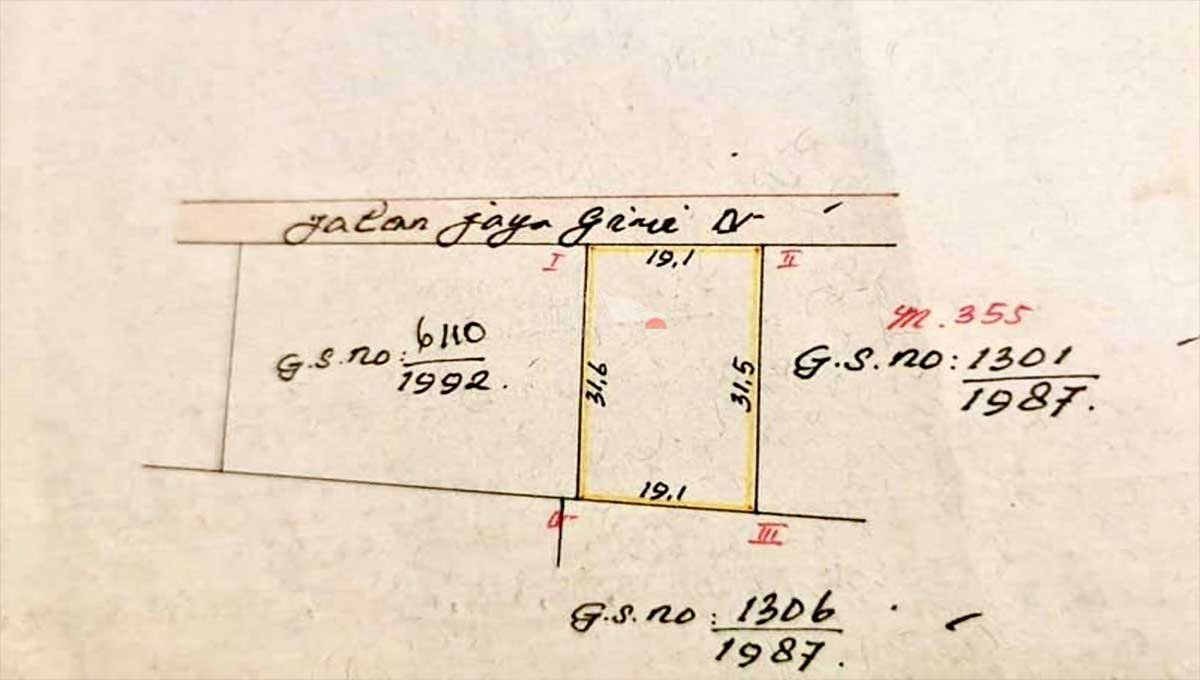 Jalan Jaya Giri IV
I
19,1
II
M. 355
G.S. no: 6110
1992.
31,6
31,5
G.S. no: 1301
1987.
19,1
IV
III
G.S. no: 1306
1987.